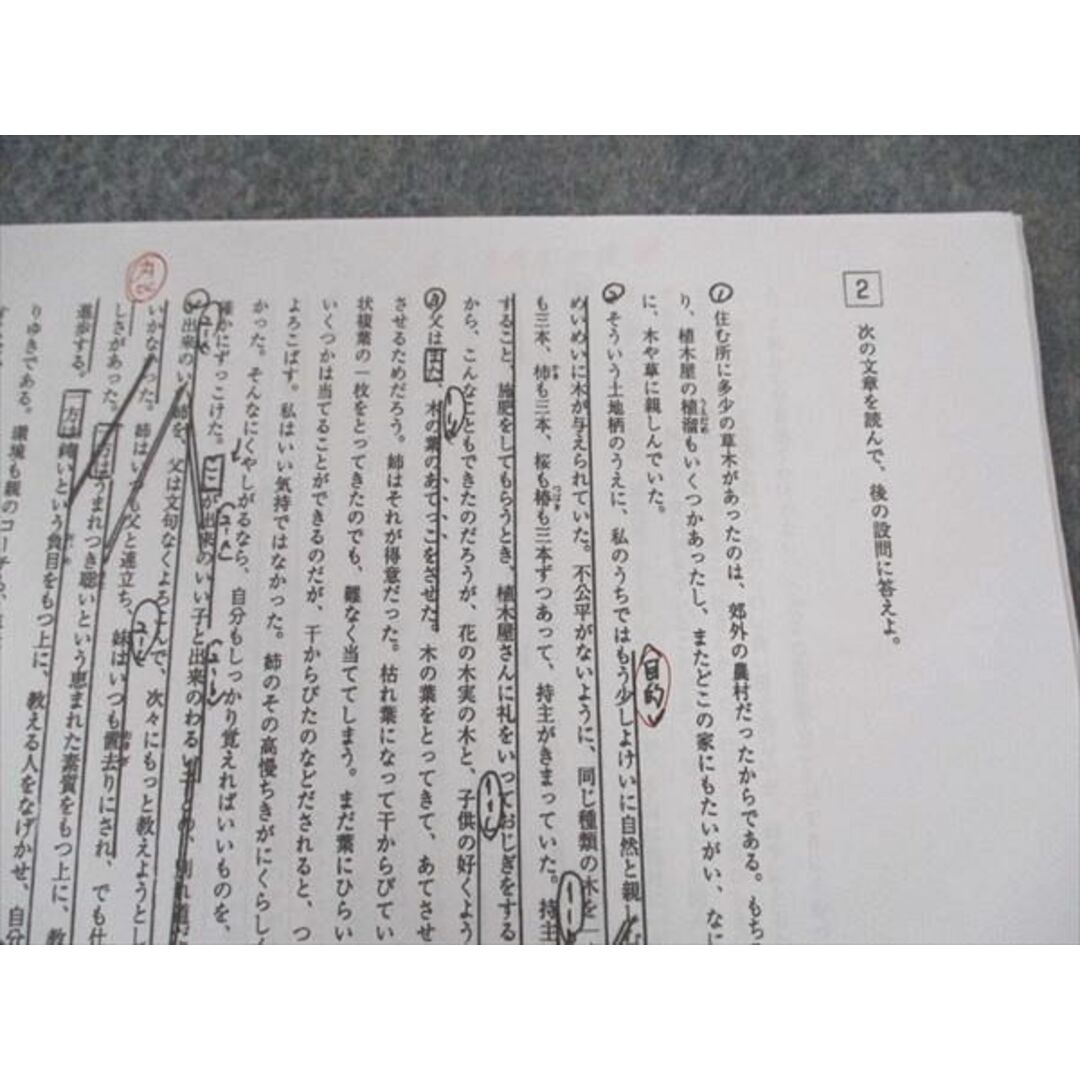 2
次の文章を読んで、後の設問に答えよ。
① 住む所に多少の草木があったのは、郊外の農村だったからである。もち
り、植木屋の植溜もいくつかあったし、またどこの家にもたいがい、なに
うえだめ
に、木や草に親しんでいた。
目的
② そういう土地柄のうえに、私のうちではもう少しよけいに自然と親しむ
めいめいに木が与えられていた。不公平がないように、同じ種類の木を一
も三本、柿も三本、桜も椿も三本ずつあって、持主がきまっていた。持主
かき
つばき
すること、施肥をしてもらうとき、植木屋さんに礼をいっておじぎをする
から、こんなこともできたのだろうが、花の木実の木と、子供の好くよう
③ 父はまた、木の葉のあてっこをさせた。木の葉をとってきて、あてさせ
させるためだろう。姉はそれが得意だった。枯れ葉になって干からびてい
状複葉の一枚をとってきたのでも、難なく当ててしまう。まだ葉にひらい
いくつかは当てることができるのだが、干からびたのなどだされると、つ
よろこばす。私はいい気持ではなかった。姉のその高慢ちきがにくらしく
かった。そんなにくやしがるなら、自分もしっかり覚えればいいものを、
確かにずっこけた。ここが出来のいい子と出来のわるい子との、別れ道だ
出来のいい姉を、父は文句なくよろこんで、次々にもっと教えようとし
いかなかった。姉はいつも父と連立ち、妹はいつも置去りにされ、でも仕
しさがあった。一方はうまれつき聡いという恵まれた素質をもつ上に、教
進歩する。一方は鈍いという負目をもつ上に、教える人をなげかせ、自分
りゆきである。環境も親のコーチも、